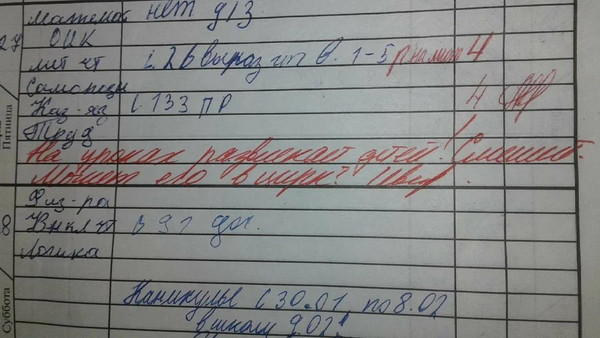 27 Математ нет д/з
ОИК
лит чт с. 26 выраз чт в. 1-5 4
Самопозн
Каз-яз с 133 ПР 4
Пятница
Труд
На уроках развлекает детей! Смешит.
Может его в цирк?
Физ-ра
8 Внкл чт с 91 дог.
Логика
Суббота
Каникулы с 30.01 по 8.02
в школу 9.02!